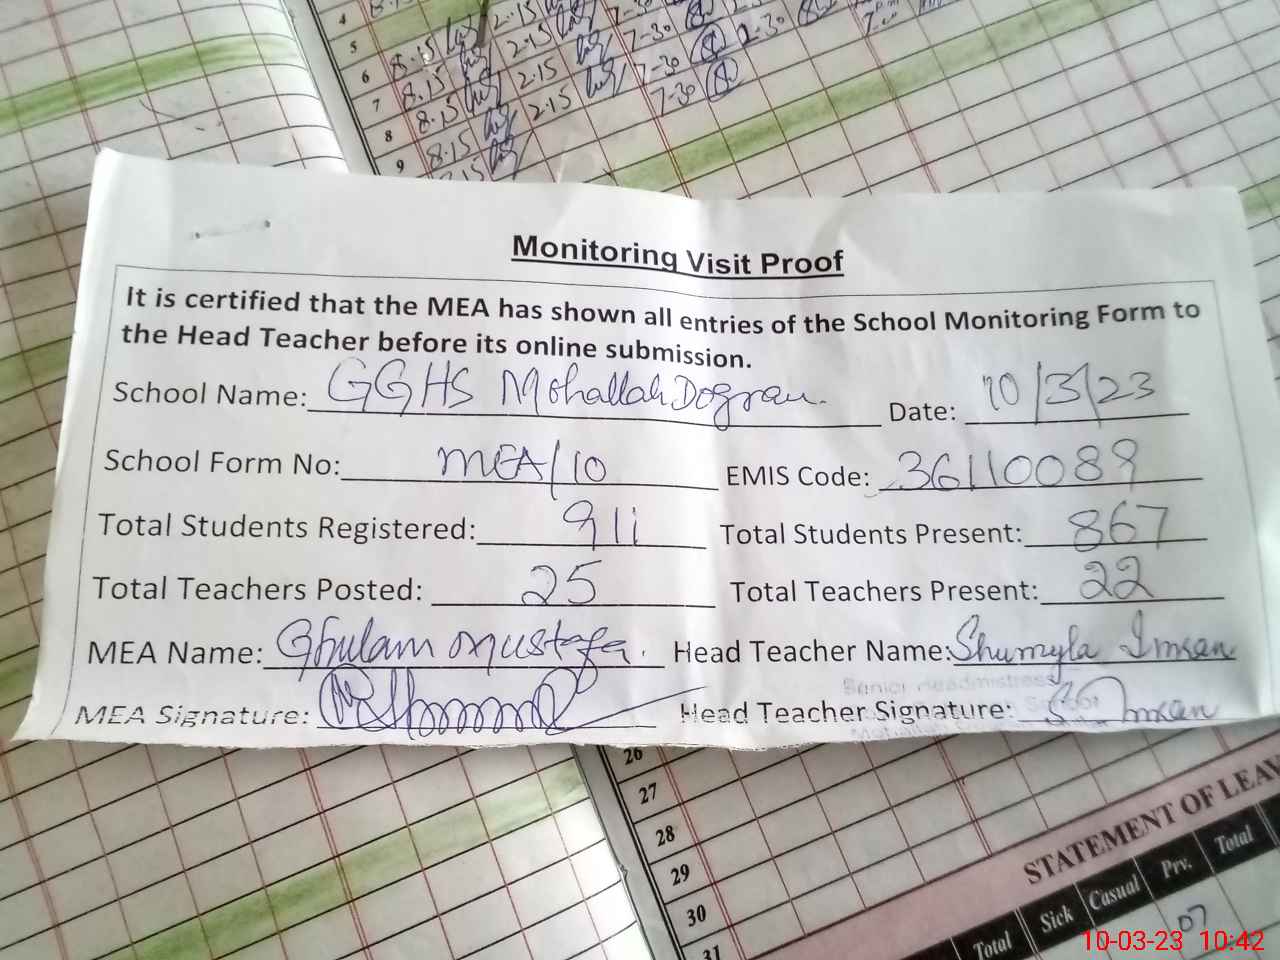 4
5 8.15 2.15 7-30
6 8.15 2.15 7-30 2-30
7 8.15 2.15 7-30
8 8.15 2.15 7-30
9 8.15
Monitoring Visit Proof
It is certified that the MEA has shown all entries of the School Monitoring Form to
the Head Teacher before its online submission.
School Name: GGHS Mohallah Dogran. Date: 10/3/23
School Form No: MEA/10 EMIS Code: 36110089
Total Students Registered: 911 Total Students Present: 867
Total Teachers Posted: 25 Total Teachers Present: 22
MEA Name: Ghulam Mustafa. Head Teacher Name: Shumyla Imran
Senior Headmistress
MEA Signature: Head Teacher Signature: S. Imran
26
27
28
29
30
31
STATEMENT OF LEAV
Total Sick Casual Prv. Total
07
10-03-23 10:42